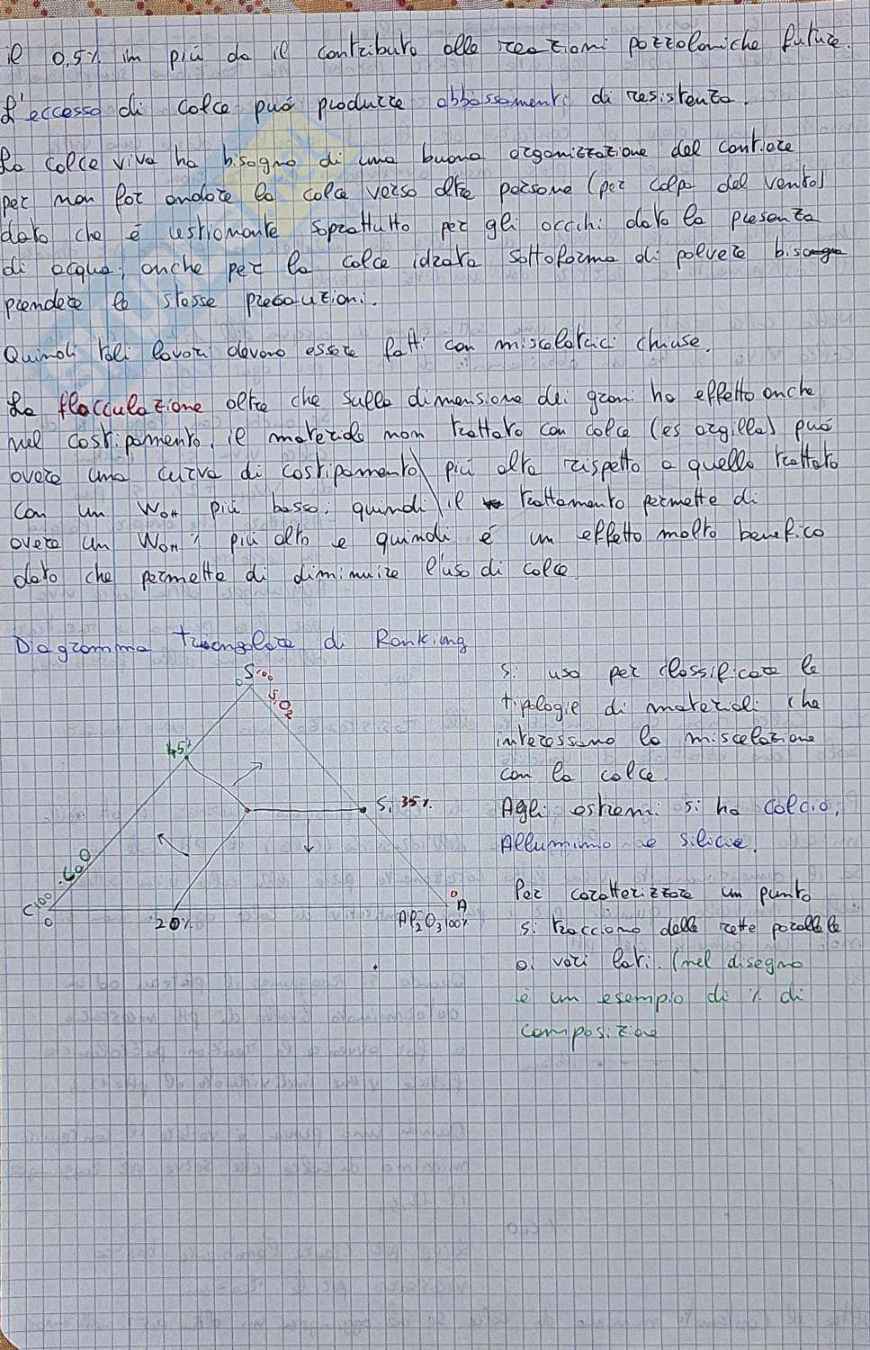 il 0,5% in più da il contributo alle reazioni pozzolaniche future.
L'eccesso di calce può produrre abbassamenti di resistenza.
La calce viva ha bisogno di una buona organizzazione del cantiere
per non far andare la calce verso altre persone (per colpa del vento)
dato che è ustionante soprattutto per gli occhi data la presenza
di acqua, anche per la calce idrata sottoforma di polvere bisogna
prendere le stesse precauzioni.
Quindi tali lavori devono essere fatti con miscelatrici chiuse.
La flocculazione oltre che sulla dimensione dei grani ha effetto anche
nel costipamento, il materiale non trattato con calce (es argilla) può
avere una curva di costipamento più alta rispetto a quello trattato
con un Wott più basso, quindi il trattamento permette di
avere un più alto e quindi è un effetto molto benefico
dato che permette di diminuire l'uso di calce
Diagramma triangolare di Ranking
S 100
0
SiO2
45%
Si 35%
CaO
C 100
0
20%
Al2O3 100%
0
A
Si usa per classificare le
tipologie di materiali che
interessano la miscelazione
con la calce.
Agli estremi si ha calcio,
Alluminio e silicio.
Per caratterizzare un punto
si tracciano delle rette parallele
ai vari lati. (nel disegno
è un esempio di % di
composizione